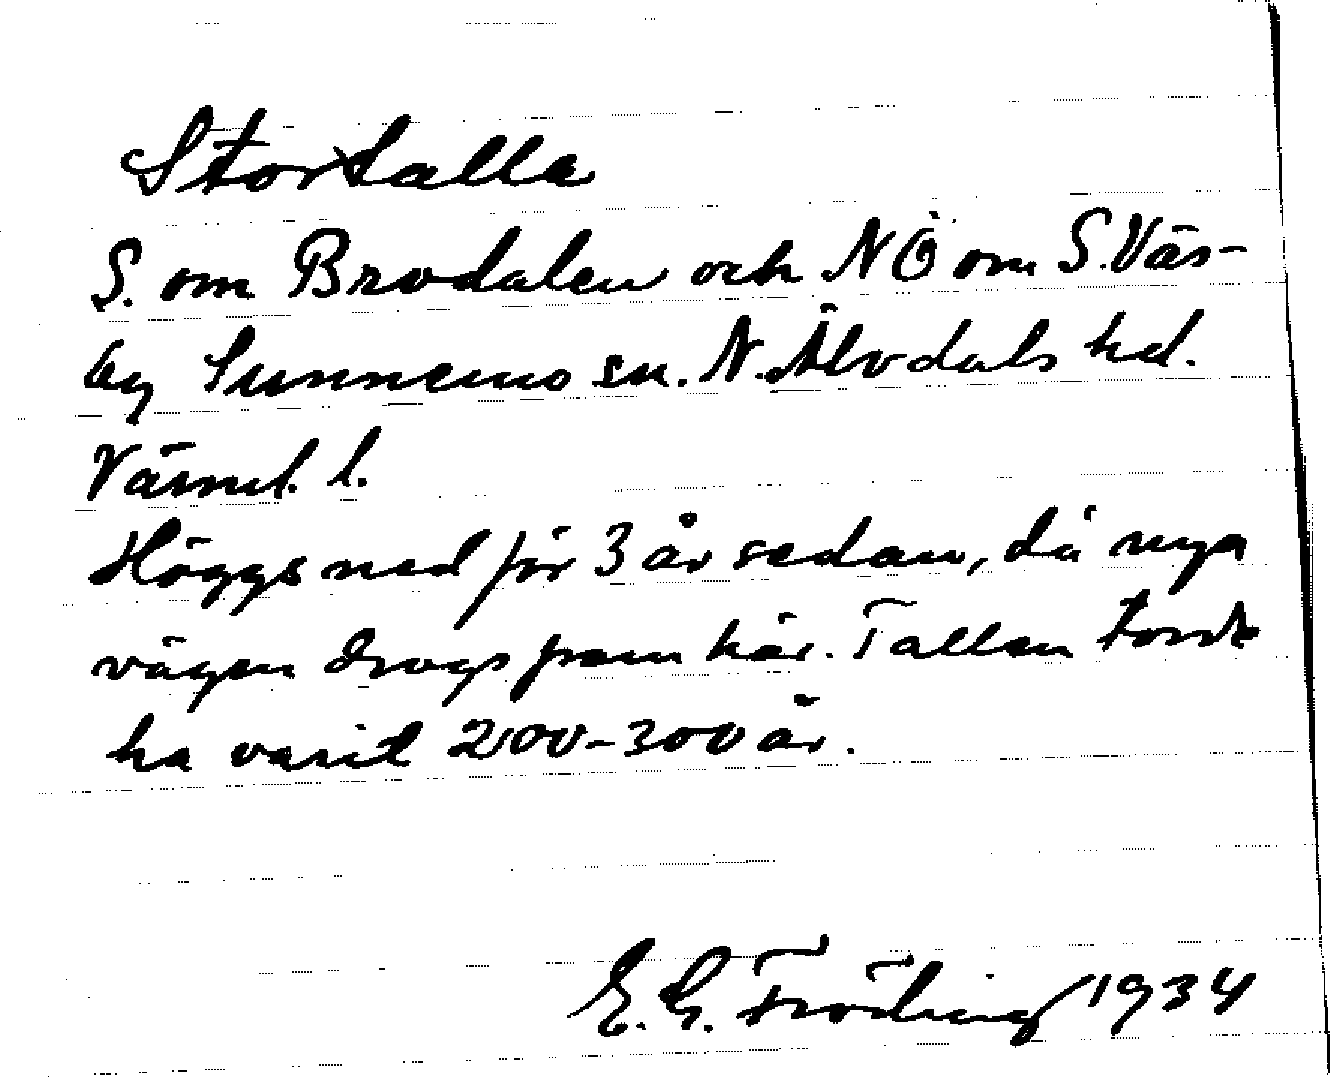 Stortalla
S. om Brodalen och NÖ om S. Väs-
by Sunnemo sn. N. Älvdals hd.
Värml. l.
Höggs ned för 3 år sedan, då nya
vägen drogs fram här. Tallen torde
ha varit 200-300 år.
E. G. Fröding 1934